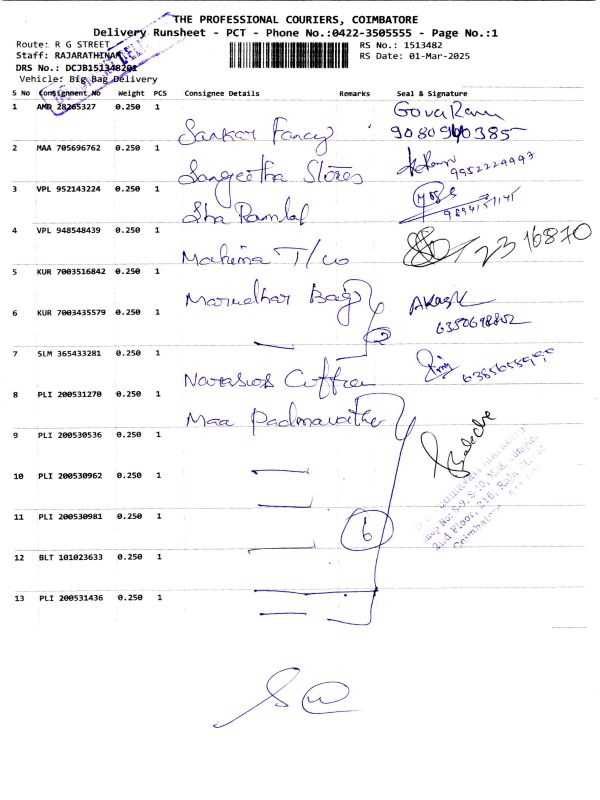 THE PROFESSIONAL COURIERS, COIMBATORE
Delivery Runsheet - PCT - Phone No.:0422-3505555 - Page No.:1
Route: R G STREET
RS No.: 1513482
Staff: RAJARATHINAM
RS Date: 01-Mar-2025
DRS No.: DCJB151348201
Vehicle: Big Bag Delivery
S No Consignment No Weight PCS Consignee Details Remarks Seal & Signature
1 AMD 28265327 0.250 1 Sankar Fancy
9080940385
2 MAA 705696762 0.250 1 Sangeetha Stores
9952229993
3 VPL 952143224 0.250 1 Sha Ramlal
4 VPL 948548439 0.250 1 Mahima T/co
72316870
5 KUR 7003516842 0.250 1 Marudhar Bag
Akash
6 KUR 7003435579 0.250 1
2
7 SLM 365433281 0.250 1
8 PLI 200531270 0.250 1 Maa Padmavathi
9 PLI 200530536 0.250 1
10 PLI 200530962 0.250 1
11 PLI 200530981 0.250 1
6
12 BLT 101023633 0.250 1
13 PLI 200531436 0.250 1
2nd Floor, 216, Raja St.
Coimbatore